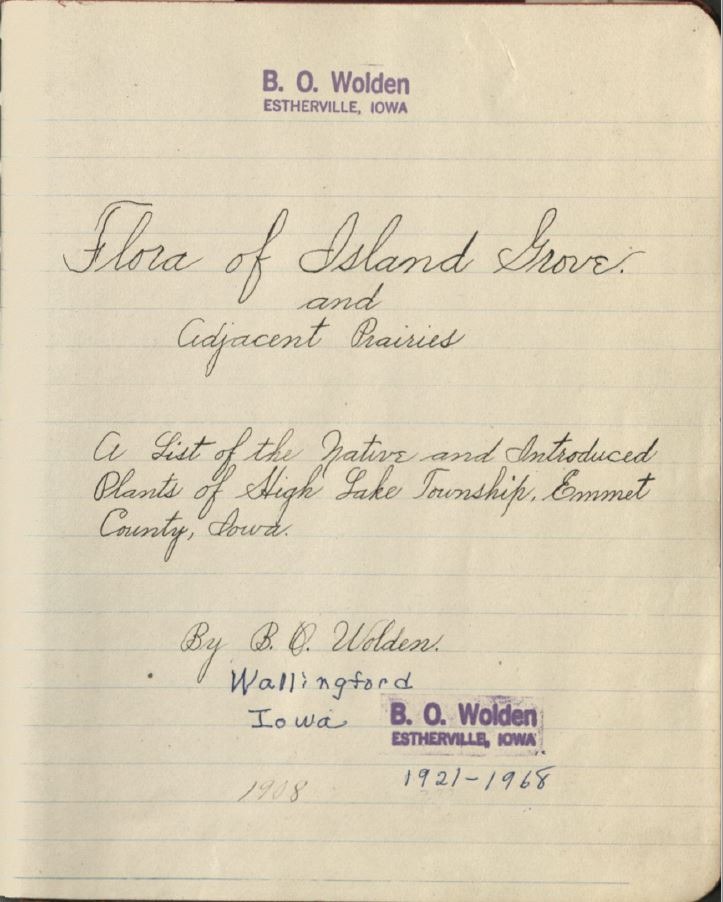 B. O. Wolden
ESTHERVILLE, IOWA
Flora of Island Grove.
and
Adjacent Prairies
A List of the Native and Introduced
Plants of High Lake Township, Emmet
County, Iowa.
By B. O. Wolden.
Wallingford
Iowa
B. O. Wolden
ESTHERVILLE, IOWA
1921-1968
1908